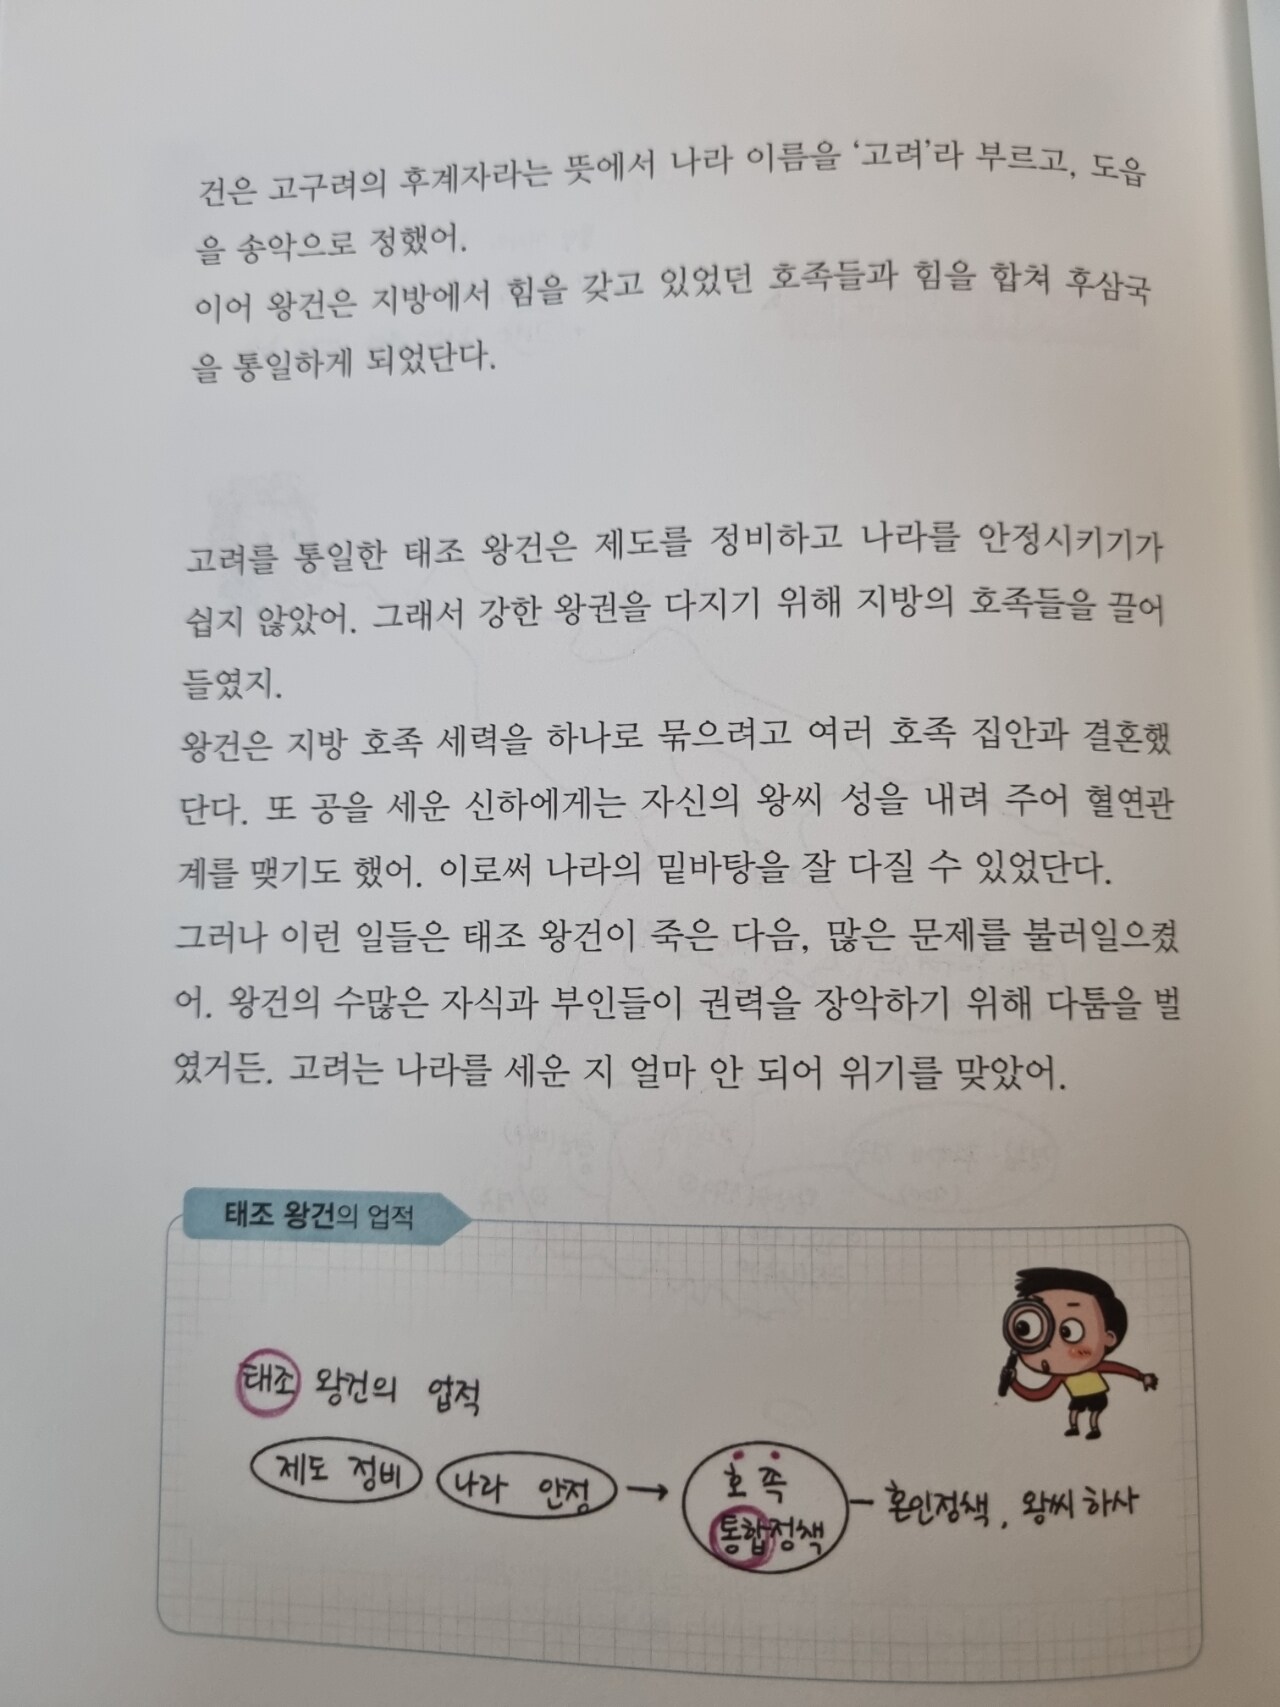 건은 고구려의 후계자라는 뜻에서 나라 이름을 ‘고려’라 부르고, 도읍
을 송악으로 정했어.
이어 왕건은 지방에서 힘을 갖고 있었던 호족들과 힘을 합쳐 후삼국
을 통일하게 되었단다.
고려를 통일한 태조 왕건은 제도를 정비하고 나라를 안정시키기가
쉽지 않았어. 그래서 강한 왕권을 다지기 위해 지방의 호족들을 끌어
들였지.
왕건은 지방 호족 세력을 하나로 묶으려고 여러 호족 집안과 결혼했
단다. 또 공을 세운 신하에게는 자신의 왕씨 성을 내려 주어 혈연관
계를 맺기도 했어. 이로써 나라의 밑바탕을 잘 다질 수 있었단다.
그러나 이런 일들은 태조 왕건이 죽은 다음, 많은 문제를 불러일으켰
어. 왕건의 수많은 자식과 부인들이 권력을 장악하기 위해 다툼을 벌
였거든. 고려는 나라를 세운 지 얼마 안 되어 위기를 맞았어.
태조 왕건의 업적
태조 왕건의 업적
제도 정비 나라 안정 → 호족 통합정책 – 혼인정책, 왕씨 하사